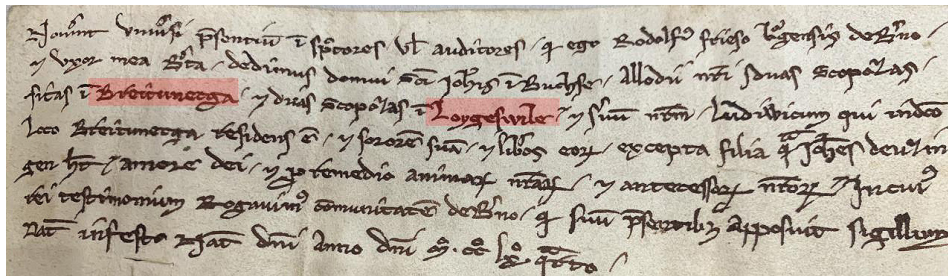 Noverint universi presentium inspectores vel auditores · quod ego Rodolfus frieso burgensis de Berno ·
et uxor mea Berta · dedimus domui sancti Johannis in Buchse · Allodii nostri duas scopozas ·
sitas in Breitunegga · et duas scopozas in Loygeswile · et servum nostrum · Ludiwicum qui in dicto
loco Breitunegga residens est · et sororem suam · et liberos eorum · excepta filia quam Johannes de
gen habet · amore dei · et pro remedio animarum nostrarum · et antecessorum nostrorum · In cuius
rei testimonium Rogavimus comunitatem de Berno · quod suum presentibus apposuit sigillum
Dat in festo Nat dni Anno dni M · CC · LX · quarto ·